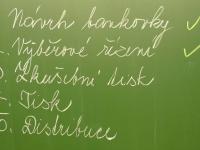 Návrh bankovky ✓
. Výběrové řízení ✓
. Zkušební tisk
. Tisk
5. Distribuce